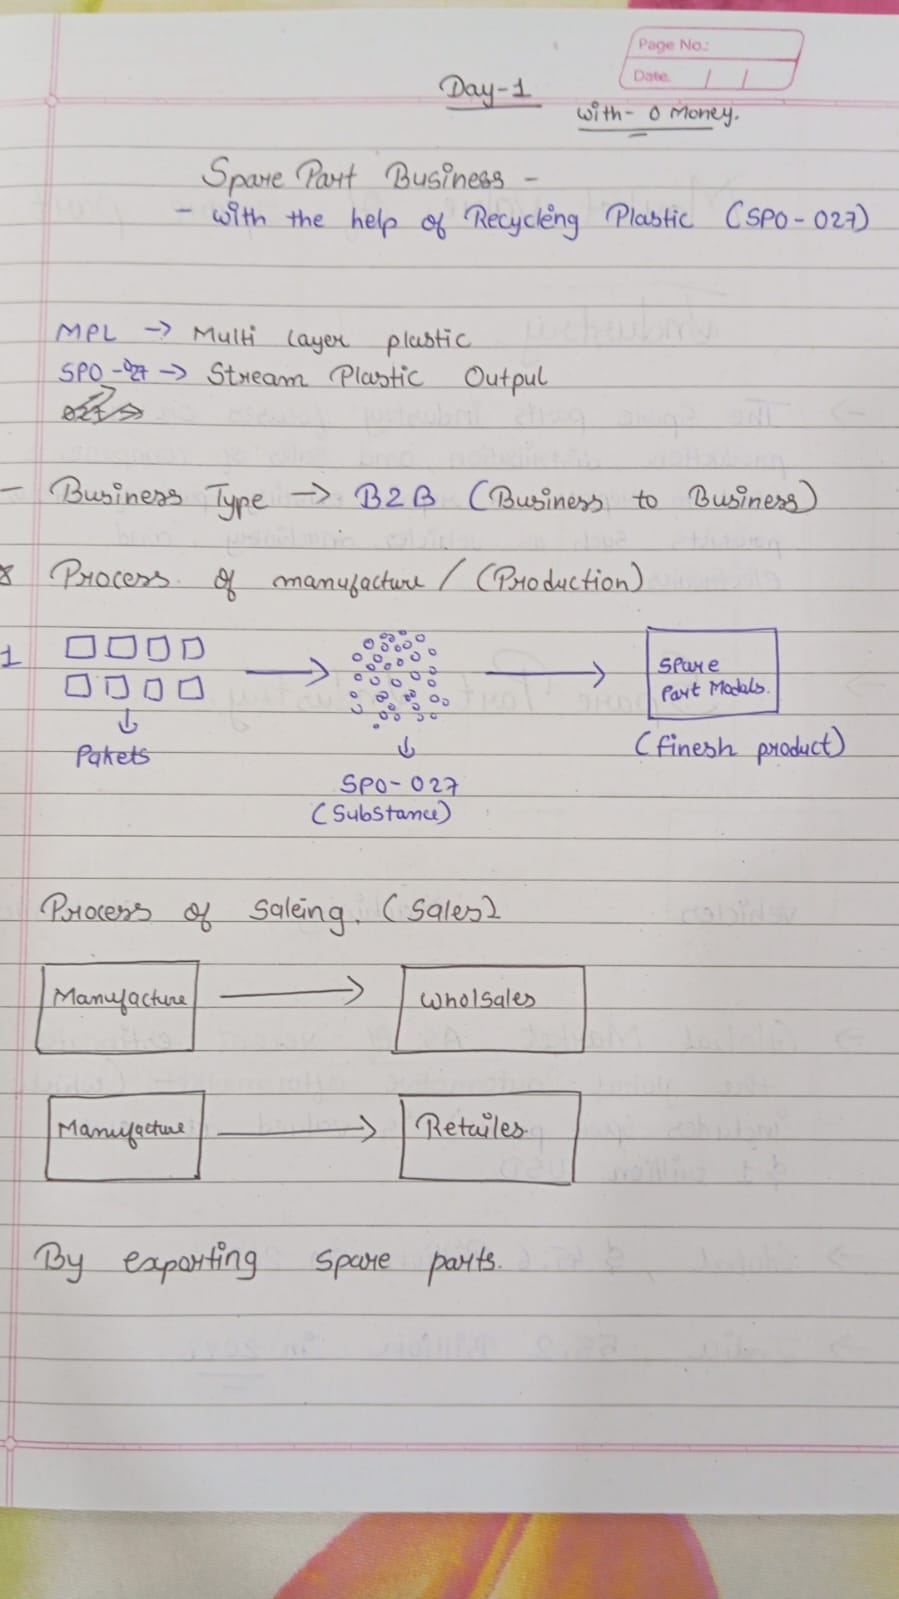 Page No.:
Date. / /
Day-1
With- 0 Money.
Spare Part Business -
- with the help of Recycleing Plastic (SPO-027)
MPL -> Multi layer plastic
SPO-027 -> Stream Plastic Output
027 ->
- Business Type -> B2B (Business to Business)
Process of manufacture / (Production)
1
Pakets
SPO-027
(Substance)
Spare
Part Modals.
(finesh product)
Process of Saleing. (Sales)
Manufacture
Wholsales
Manufacture
Retailes
By exporting spare parts.